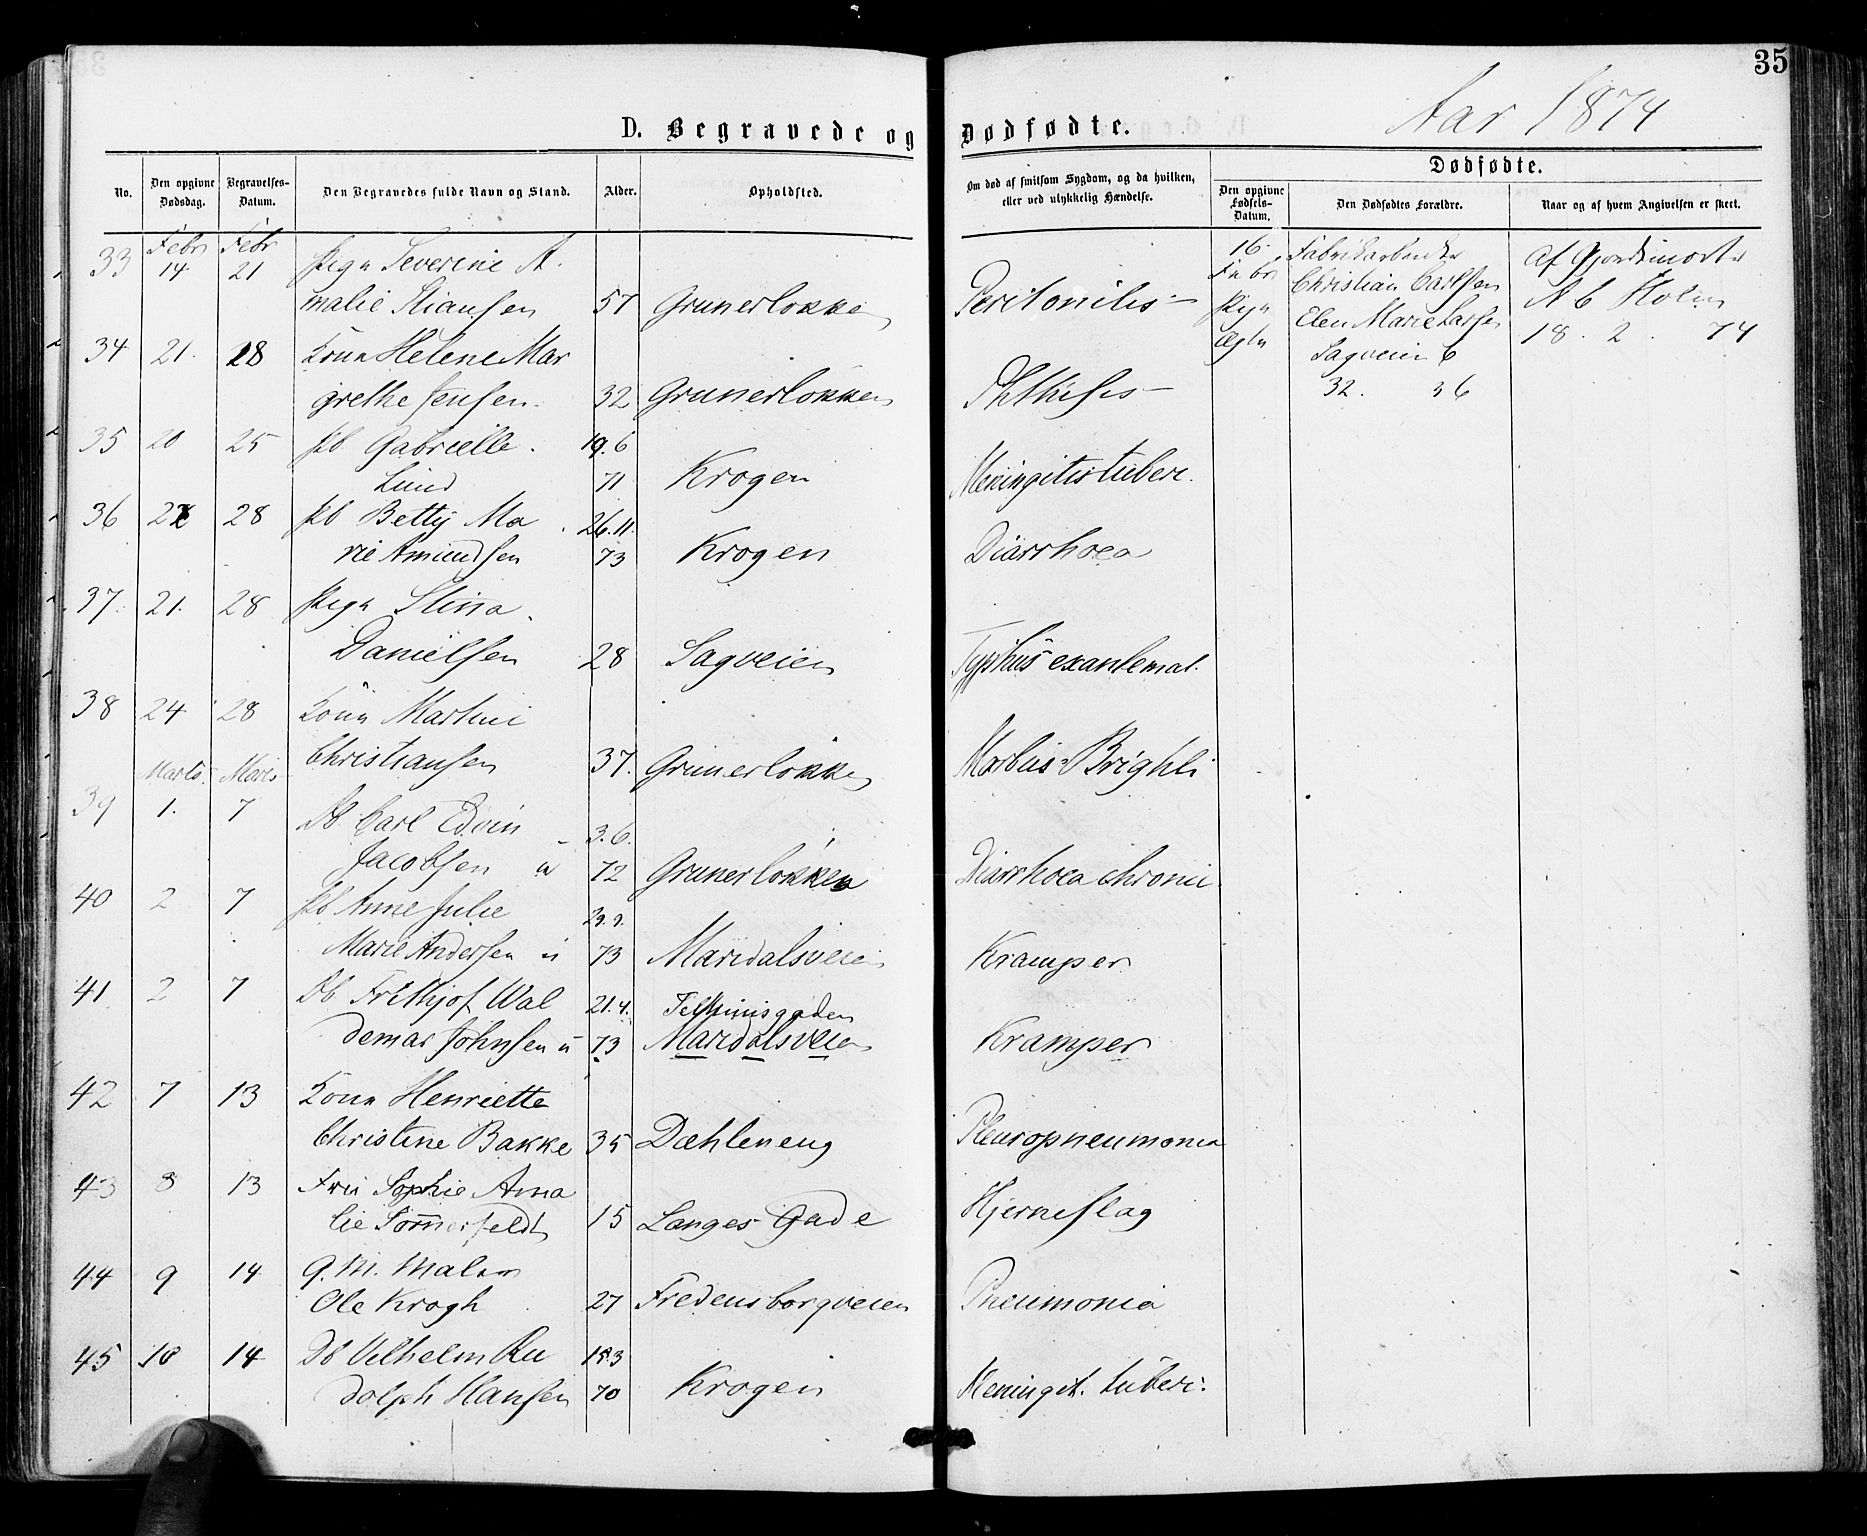 35
Aar 1874
D. Begravede og Dødfødte.
No. Den opgivne Dødsdag. Begravelses-Datum. Den Begravedes fulde Navn og Stand. Alder. Opholdsted. Om død af smitsom Sygdom, og da hvilken, eller ved ulykkelig Hændelse.
Dødfødte.
Den opgivne Fødsels-Datum. Den Dødfødtes Forældre. Naar og af hvem Angivelsen er skeet.
Febr Febr
33 14 21 Pige Severine A
malie Stiansen 57 Grunerløkken Peritonitis
16 Febr Fabrikarbeider
Christian Carlsen
Elen Marie Larsen
Sagveien 6
32. 36
Af Gjordemoder
A C Holm
18. 2. 74
34 21. 28 Kone Helene Mar
grethe Jensen. 32 Grunerløkken Phthisis
35 20 25 Pb Gabrielle. 19.6
Lund 71 Krogen Meningitis tuberc.
36 22 28 Pb Betty Ma 26.11.
rie Amundsen 73 Krogen Diarrhoea
37. 21. 28 Pige Stina
Danielsen 28 Sagveien Typhus exantemat.
38 24 28 Kone Martine
Christiansen 37. Grunerløkken Morbus Brighti
Marts Marts
39 1. 7 Db Carl Edvin 3.6.
Jacobsen u 72 Grunerløkken Diarrhoea chronic
40 2 7 Pb Anne Julie 29.9.
Marie Andersen u 73 Maridalsveien Kramper
41 2 7 Db Frithjof Wal 21.4. Telthusgaden
demar Johnsen u 73 Maridalsveien Kramper
42 7 13 Kone Henriette
Christine Bakke 35 Dæhleneng Pleuropneumonia
43 8 13 Frü Sophie Ama
lie Sommerfeldt 15 Langes Gade Hjerneslag
44 9 14 G. M. Maler
Ole Krogh 27 Fredensborgveien Pneumonia
45 10 14 Db Vilhelm Ru 18.3
dolph Hansen 70 Krogen Meningit. tuberc.